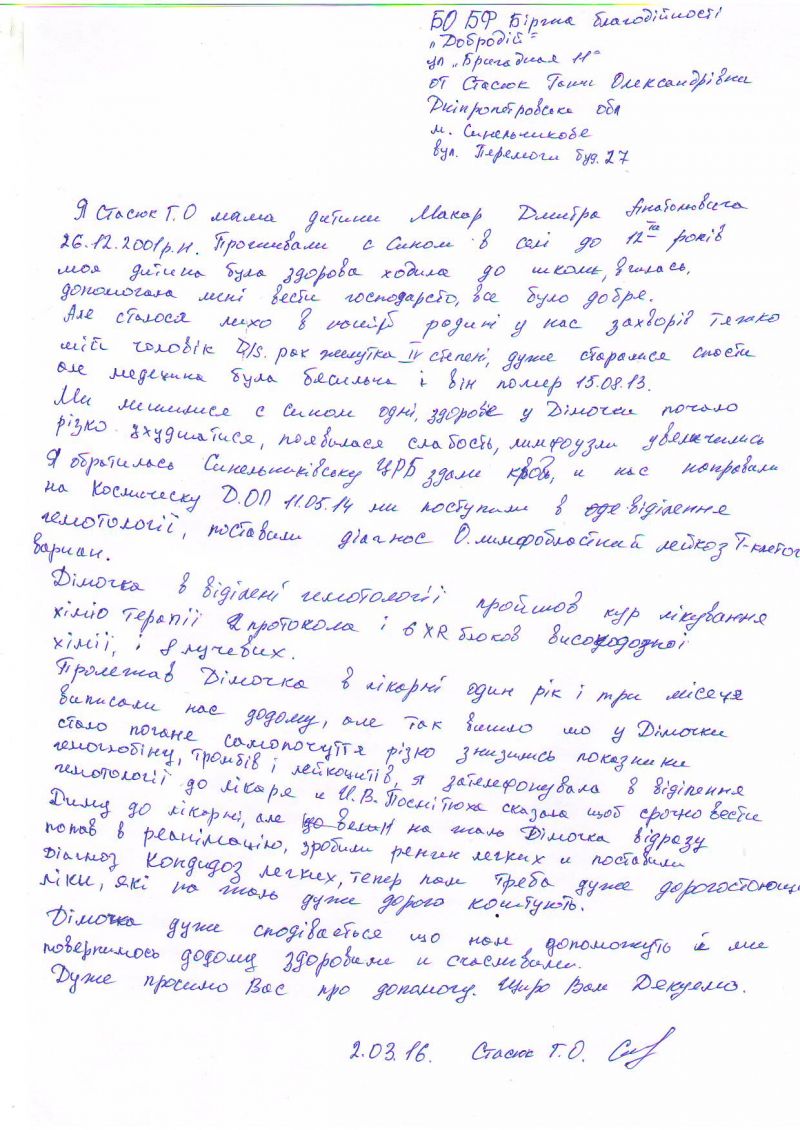 БО БФ Біржа благодійності
„Добродій"
ул „Бригадная 11"
от Стасюк Ганни Олександрівни
Дніпропетровська обл
м. Синельникове
вул. Перемоги буд. 27
Я Стасюк Г.О мама дитини Макар Дмитра Анатолієвича
26.12.2001р.н. Проживали с сином в селі до 12ти років
моя дитина була здорова ходила до школи, вчилась,
допомогала мені вести господарсто, все було добре.
Але сталося лихо в нашій родині у нас захворів тяжко
мій чоловік D/s. рак желутка IV степені, дуже старалися спасти
але медецина була безсильна і він помер 15.08.13.
Ми лишилися с сином одні, здоровє у Дімочки почало
різко ухудшатися, появилася слабость, лимфоузли увеличились
Я обратилась Синельниківську ЦРБ здали кровь, и нас направили
на Космическу Д.ОП 11.05.14 ми поступили в віділення
гемотології, поставили діагнос О.лимфобластний лейкоз Т-клеточ
вариан.
Дімочка в віділені гемотології пройшов кур лікування
хіміо терапії 2 протокола і 6 XR блоков високодозної
хімії, і 8 лучевих.
Пролежав Дімочка в лікарні один рік і три місеця
виписали нас додому, але так вишло шо у Дімочки
стало погане самопочуття різко знизились показники
гемоглобіну, тромбів і лейкоцитів, я зателефонувала в віділення
гемотології до лікаря и И.В. сказала щоб срочно вести
Диму до лікарні, але на жаль Дімочка відразу
попав в реанімацію, зробили ренген легких и поставили
Діагноз Кондидоз легких, тепер нам треба дуже дорогостоющи
ліки, які на жаль дуже дорого коштують.
Дімочка дуже сподівається що нам допоможуть и ми
повернимось додому здоровими и счасливими.
Дуже просимо Вас про допомогу. Щиро Вам Дякуемо.
2.03.16. Стасюк Г.О.